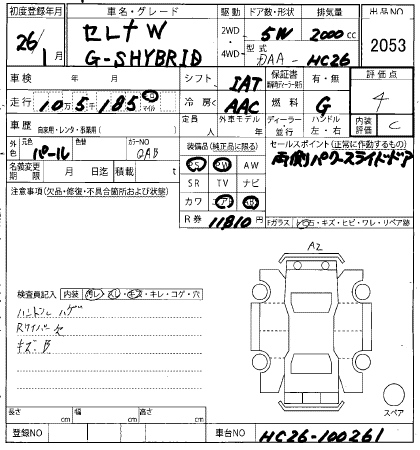 初度登録年月 車名・グレード 駆動 ドア数・形状 排気量 出品NO
26/1 セレナ W 2WD 5W 2000cc 2053
G-SHYBRID 4WD 型式 DAA-HC26
車検 年 月 シフト IAT 保証書 有・無 評価点
走行 10万5千185 km マイル 冷房 AAC 燃料 G 4
車歴 自家用・レンタ・事業用( ) 定員 人 外車モデル 年 ディーラー 並行 ハンドル 左・右 内装評価 C
外色 元色 パール 色替 カラーNO QAB 装備品(純正品に限る) セールスポイント(正常に作動するもの)
名義変更期限 月 日迄 積載 t PS PW AW 両側パワースライドドア
注意事項(欠品・修復・不具合箇所および状態) SR TV ナビ
カワ
R券 11810円 Fガラス
A2
検査員記入 内装 キレ・コゲ・穴
ハンドル ハゲ
Rワイパー 欠
キズ.B
スペア
長さ cm 幅 cm 高さ cm
登録NO 車台NO HC26-100261